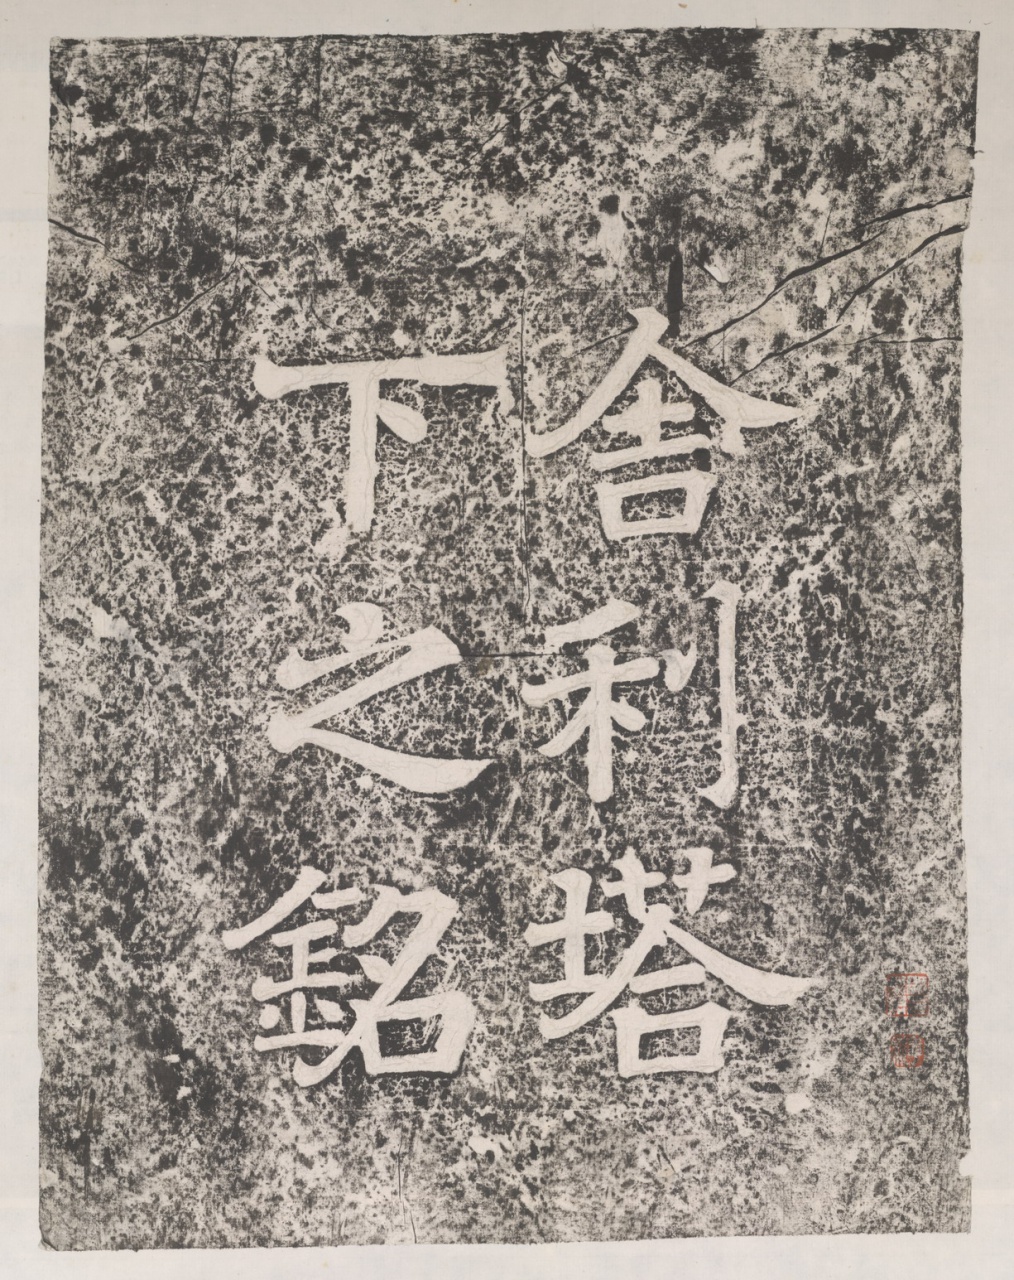 舎利塔
下之銘